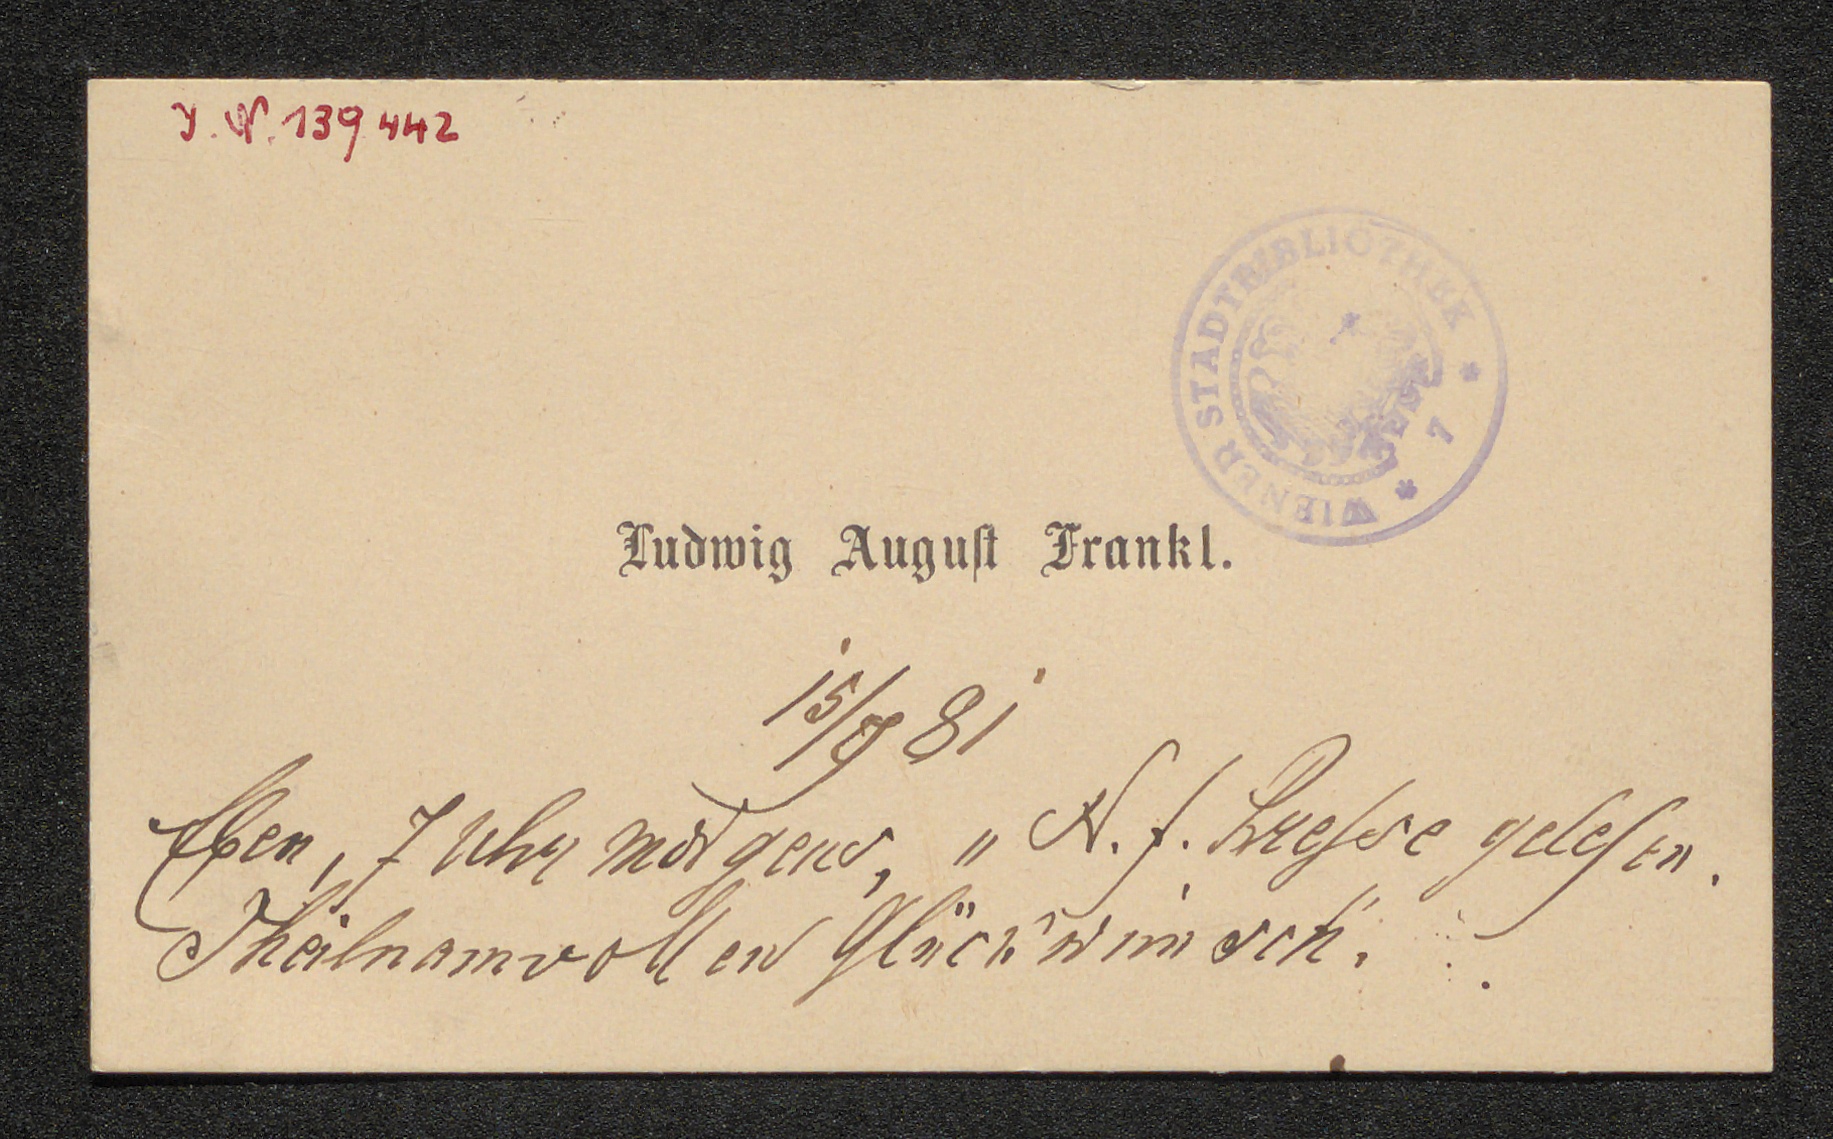 I. N. 139 442
WIENER STADTBIBLIOTHEK * 7 *
Ludwig August Frankl.
15/8 81
Eben, 7 Uhr morgens, „ N. f. Presse gelesen.
Theilnamvollen Glückwunsch.